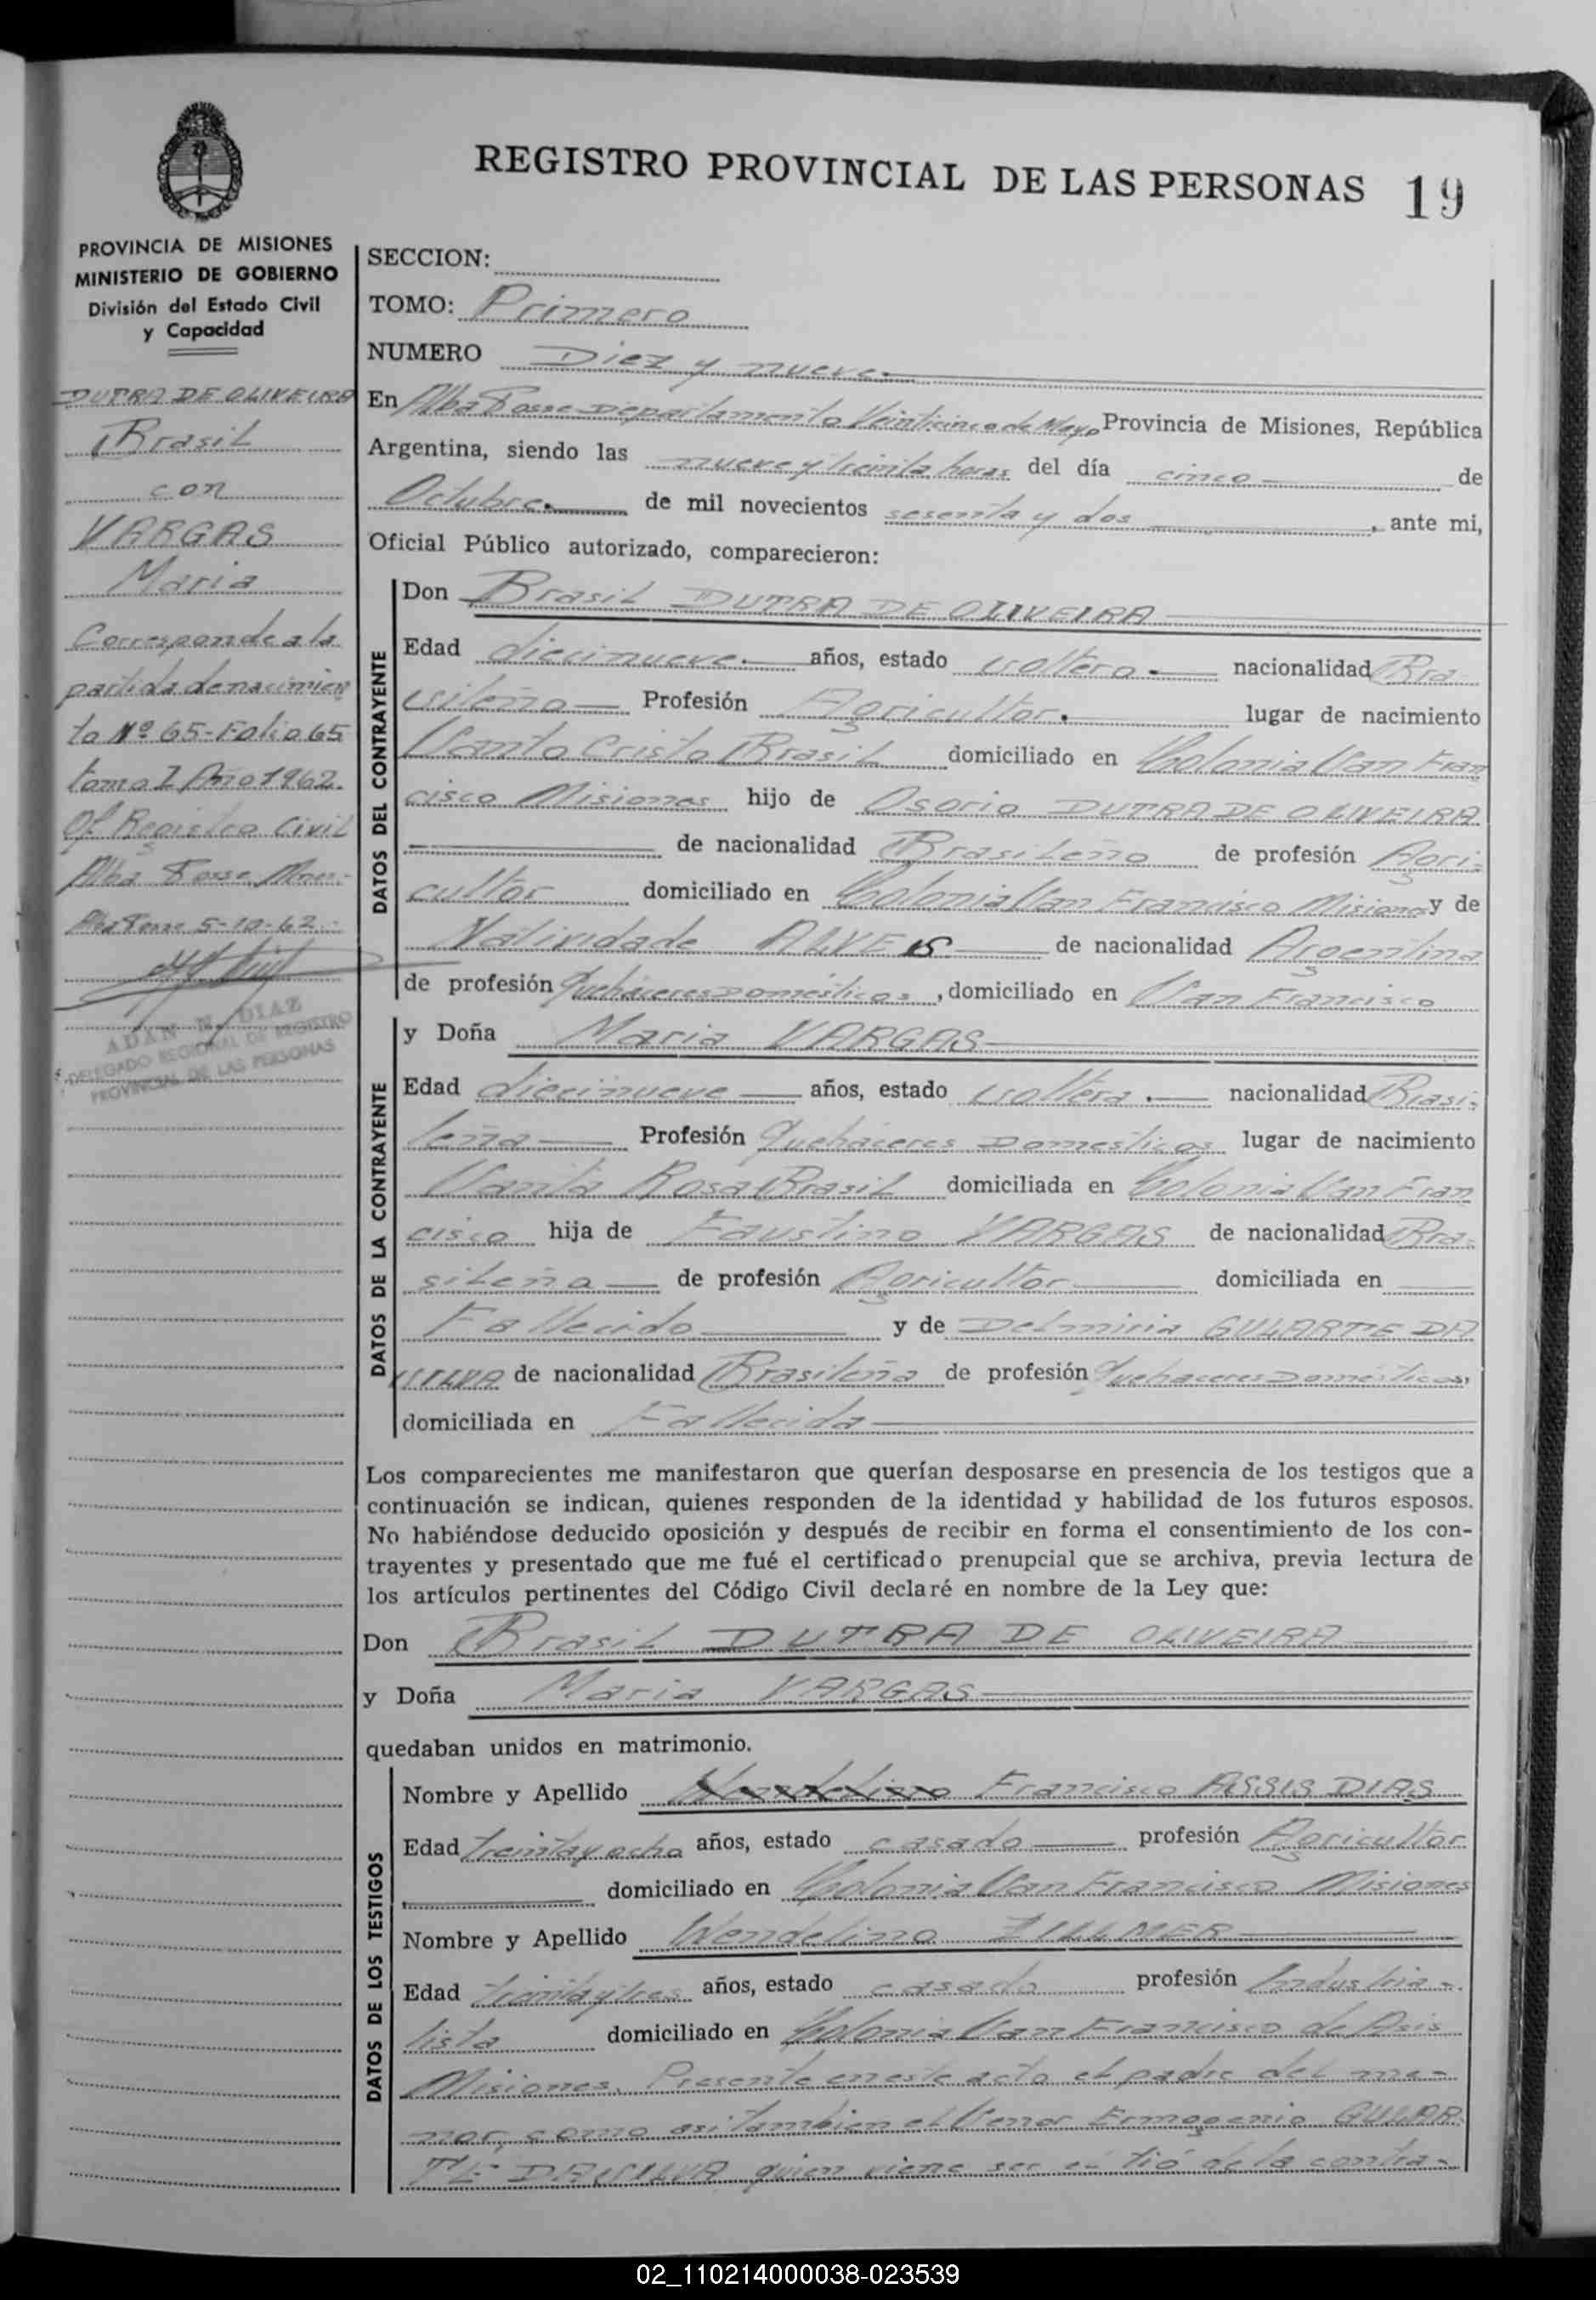 REGISTRO PROVINCIAL DE LAS PERSONAS 19
PROVINCIA DE MISIONES
MINISTERIO DE GOBIERNO
División del Estado Civil
y Capacidad
DUTRA DE OLIVEIRA
Brasil
con
VARGAS
Maria
Corresponde a la
partida de nacimien
to Nº 65-Folio 65
tomo I Año 1962.
Of Registro Civil
Alba Posse Mnes.-
Alba Posse 5-10-62.-
ADAN N. DIAZ
DELEGADO REGIONAL DE REGISTRO
PROVINCIAL DE LAS PERSONAS
SECCION:
TOMO: Primero
NUMERO Diez y nueve.
En Alba Posse Departamento Veinticinco de Mayo Provincia de Misiones, República
Argentina, siendo las nueve y treinta horas del día cinco de
Octubre. de mil novecientos sesenta y dos, ante mi,
Oficial Público autorizado, comparecieron:
DATOS DEL CONTRAYENTE
Don Brasil DUTRA DE OLIVEIRA
Edad diecinueve. años, estado soltero. nacionalidad Bra-
sileño Profesión Agricultor. lugar de nacimiento
Santo Cristo Brasil domiciliado en Colonia San Fran
cisco Misiones hijo de Osorio DUTRA DE OLIVEIRA
de nacionalidad Brasileño de profesión Agri-
cultor domiciliado en Colonia San Francisco Misiones y de
Natividade ALVES de nacionalidad Argentina
de profesión Quehaceres Domésticos, domiciliado en San Francisco
DATOS DE LA CONTRAYENTE
y Doña Maria VARGAS
Edad diecinueve años, estado soltera. nacionalidad Brasi-
leña Profesión Quehaceres Domesticos lugar de nacimiento
Santa Rosa Brasil domiciliada en Colonia San Fran
cisco hija de Faustino VARGAS de nacionalidad Bra-
sileña de profesión Agricultor domiciliada en
Fallecido y de Delmiria GULARTE DA
SILVA de nacionalidad Brasileña de profesión Quehaceres Domésticos,
domiciliada en Fallecida
Los comparecientes me manifestaron que querían desposarse en presencia de los testigos que a
continuación se indican, quienes responden de la identidad y habilidad de los futuros esposos.
No habiéndose deducido oposición y después de recibir en forma el consentimiento de los con-
trayentes y presentado que me fué el certificado prenupcial que se archiva, previa lectura de
los artículos pertinentes del Código Civil declaré en nombre de la Ley que:
Don Brasil DUTRA DE OLIVEIRA
y Doña Maria VARGAS
quedaban unidos en matrimonio.
DATOS DE LOS TESTIGOS
Nombre y Apellido Francisco ASSIS DIAS
Edad treinta y ocho años, estado casado profesión Agricultor
domiciliado en Colonia San Francisco Misiones
Nombre y Apellido Wendelino ZILLMER
Edad treinta y tres años, estado casado profesión Industria-
lista domiciliado en Colonia San Francisco de Asis
Misiones. Presente en este acto el padre del me-
nor, como asi tambien el Senor Ermogenio GULAR
TE DA SILVA quien viene ser el tió de la contra-
02_110214000038-023539